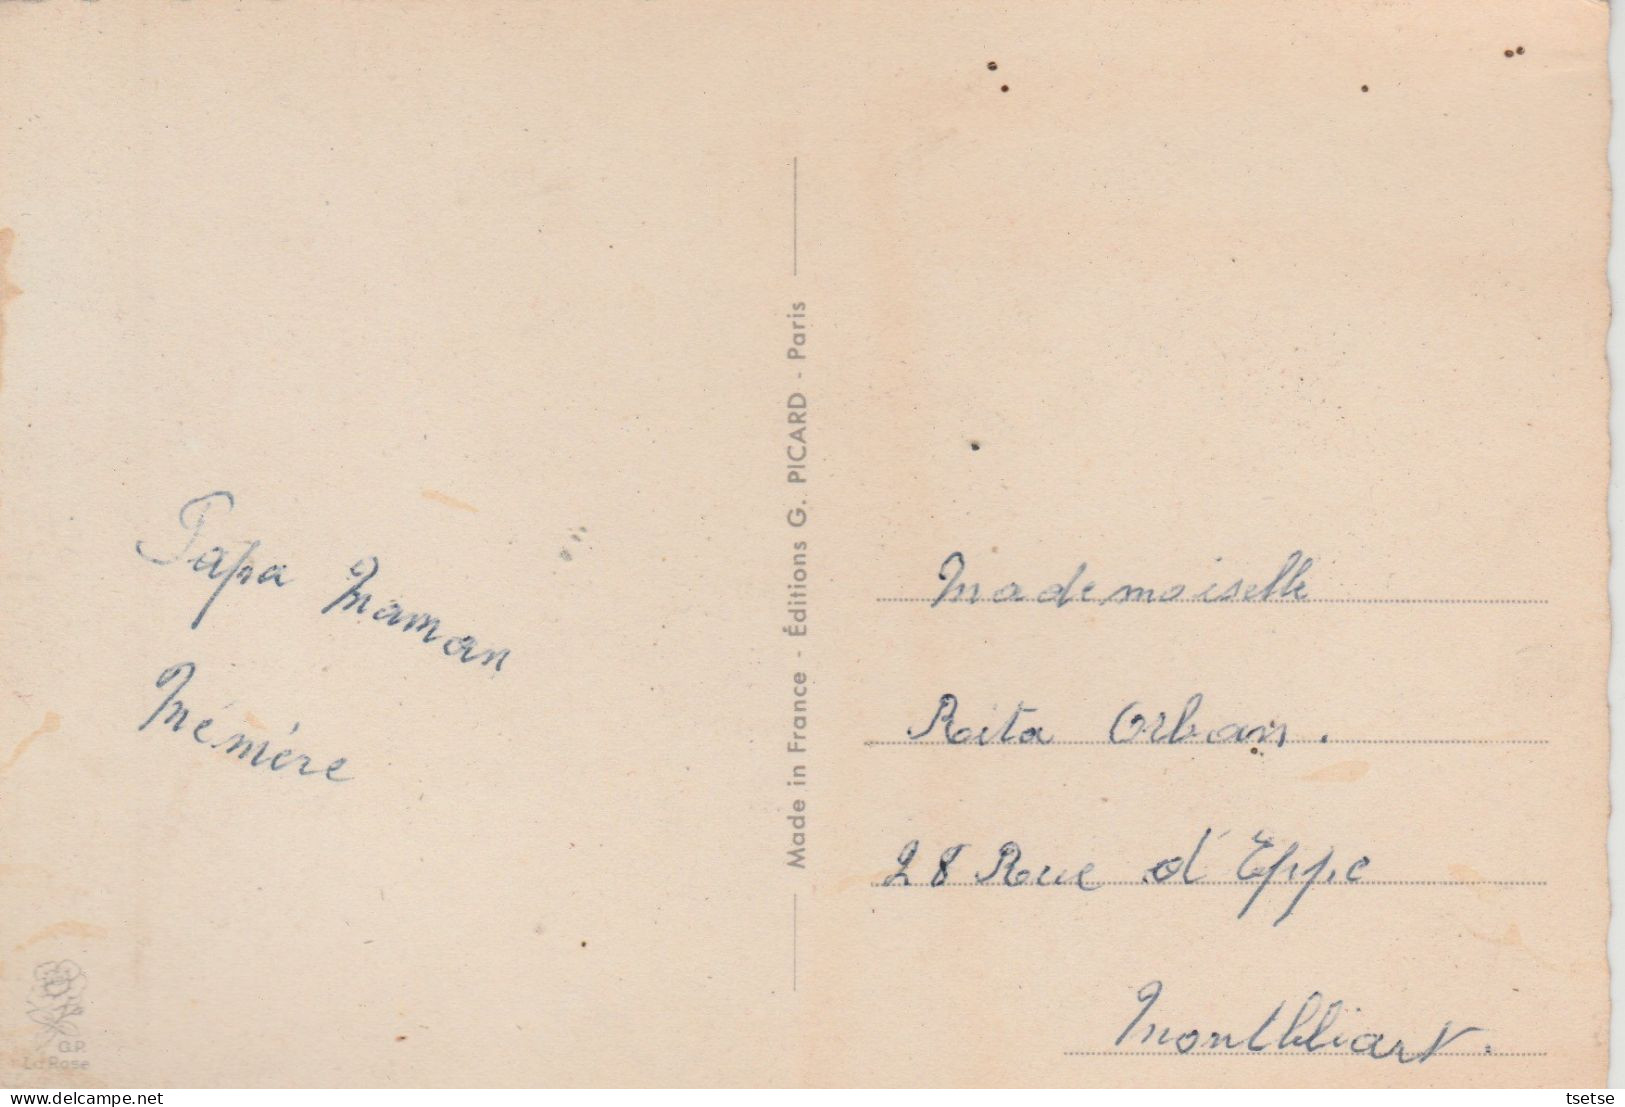 Papa Maman
Mémère
Made in France - Éditions G. PICARD - Paris
Mademoiselle
Rita Orban.
28 Rue d'Eppe
Montbliart.
G.P.
La Rose
delcampe.net
tsetse